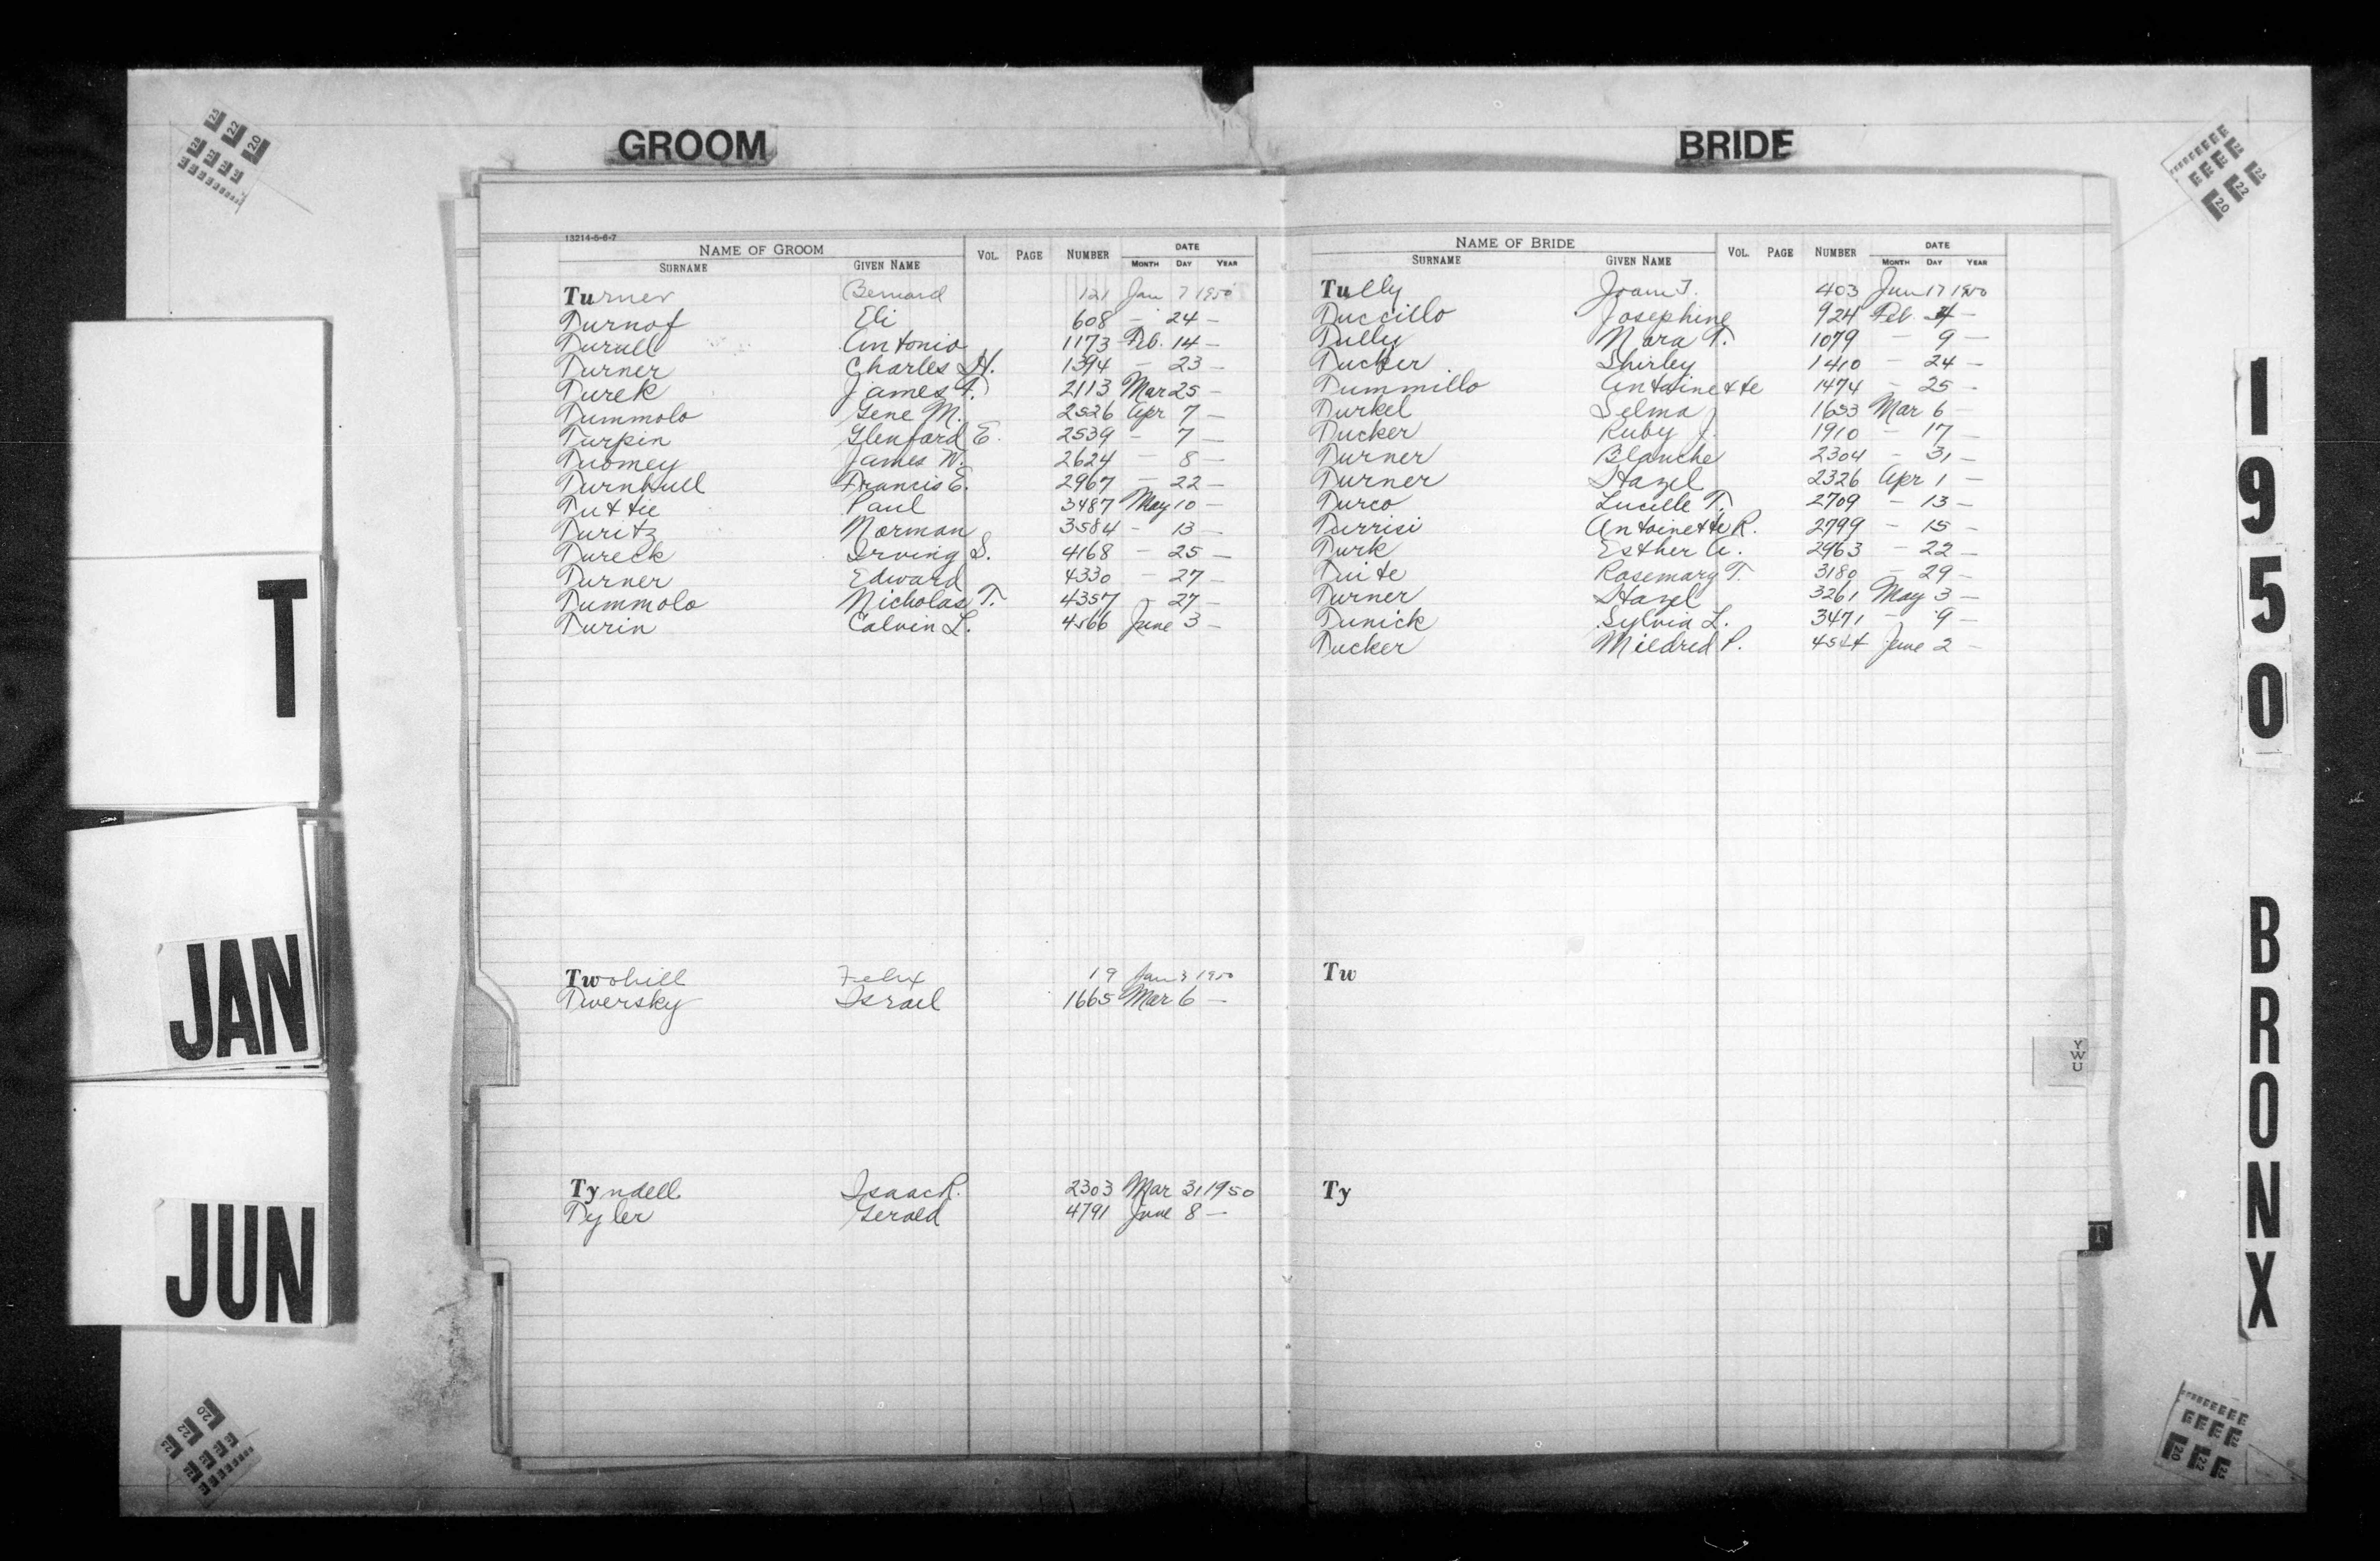 GROOM
13214-5-6-7
NAME OF GROOM VOL. PAGE NUMBER DATE
SURNAME GIVEN NAME MONTH DAY YEAR
Turner Bernard 121 Jan 7 1950
Turnof Eli 608 — 24 —
Turull Antonio 1173 Feb. 14 —
Turner Charles H. 1394 — 23 —
Turek James F. 2113 Mar 25 —
Tummolo Gene M. 2526 Apr 7 —
Turpin Glenford E. 2539 — 7 —
Tuomey James W. 2624 — 8 —
Turnbull Francis E. 2967 — 22 —
Tuttie Paul 3487 May 10 —
Turitz Norman 3584 — 13 —
Tureck Irving S. 4168 — 25 —
Turner Edward 4330 — 27 —
Tummolo Nicholas T. 4357 — 27 —
Turin Calvin L. 4566 June 3 —
Twohill Felix 19 Jan 3 1950
Twersky Israel 1665 Mar 6 —
Tyndell Isaac R. 2303 Mar 31 1950
Tyler Gerald 4791 June 8 —
BRIDE
NAME OF BRIDE VOL. PAGE NUMBER DATE
SURNAME GIVEN NAME MONTH DAY YEAR
Tully Joan T. 403 Jan 17 1950
Tuccillo Josephine 924 Feb. 4 —
Tully Mara T. 1079 — 9 —
Tucker Shirley 1410 — 24 —
Tummillo Antoinette 1474 — 25 —
Turkel Selma 1653 Mar 6 —
Tucker Ruby J. 1910 — 17 —
Turner Blanche 2304 — 31 —
Turner Hazel 2326 Apr 1 —
Turco Lucille T. 2709 — 13 —
Turrisi Antoinette R. 2799 — 15 —
Turk Esther A. 2963 — 22 —
Tuite Rosemary T. 3180 — 29 —
Turner Hazel 3261 May 3 —
Tunick Sylvia L. 3471 — 9 —
Tucker Mildred P. 4544 June 2 —
Tw
Ty
Y
W
U
T
T
JAN
JUN
1950 BRONX